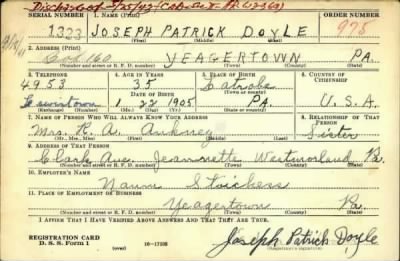 Discharged
SERIAL NUMBER 1. NAME (Print) ORDER NUMBER
1323 JOSEPH PATRICK DOYLE 975
(First) (Middle) (Last)
2. ADDRESS (Print)
Box 160 YEAGERTOWN PA.
(Number and street or R. F. D. number) (Town) (County) (State)
3. TELEPHONE 4. AGE IN YEARS 5. PLACE OF BIRTH 6. COUNTRY OF CITIZENSHIP
4953 35 Latrobe
DATE OF BIRTH
Lewistown 1 22 1905 Pa. U.S.A.
(Exchange) (Number) (Mo.) (Day) (Yr.) (State or country)
7. NAME OF PERSON WHO WILL ALWAYS KNOW YOUR ADDRESS 8. RELATIONSHIP OF THAT PERSON
Mrs. R. A. Ankney Sister
(Mr., Mrs., Miss) (First) (Middle) (Last)
9. ADDRESS OF THAT PERSON
Clark Ave. Jeannette Westmorland Pa.
(Number and street or R. F. D. number) (Town) (County) (State)
10. EMPLOYER'S NAME
Naum
11. PLACE OF EMPLOYMENT OR BUSINESS
Yeagertown Pa.
(Number and street or R. F. D. number) (Town) (County) (State)
I AFFIRM THAT I HAVE VERIFIED ABOVE ANSWERS AND THAT THEY ARE TRUE.
REGISTRATION CARD
D. S. S. Form 1 16-17105 Joseph Patrick Doyle
(Registrant's signature)